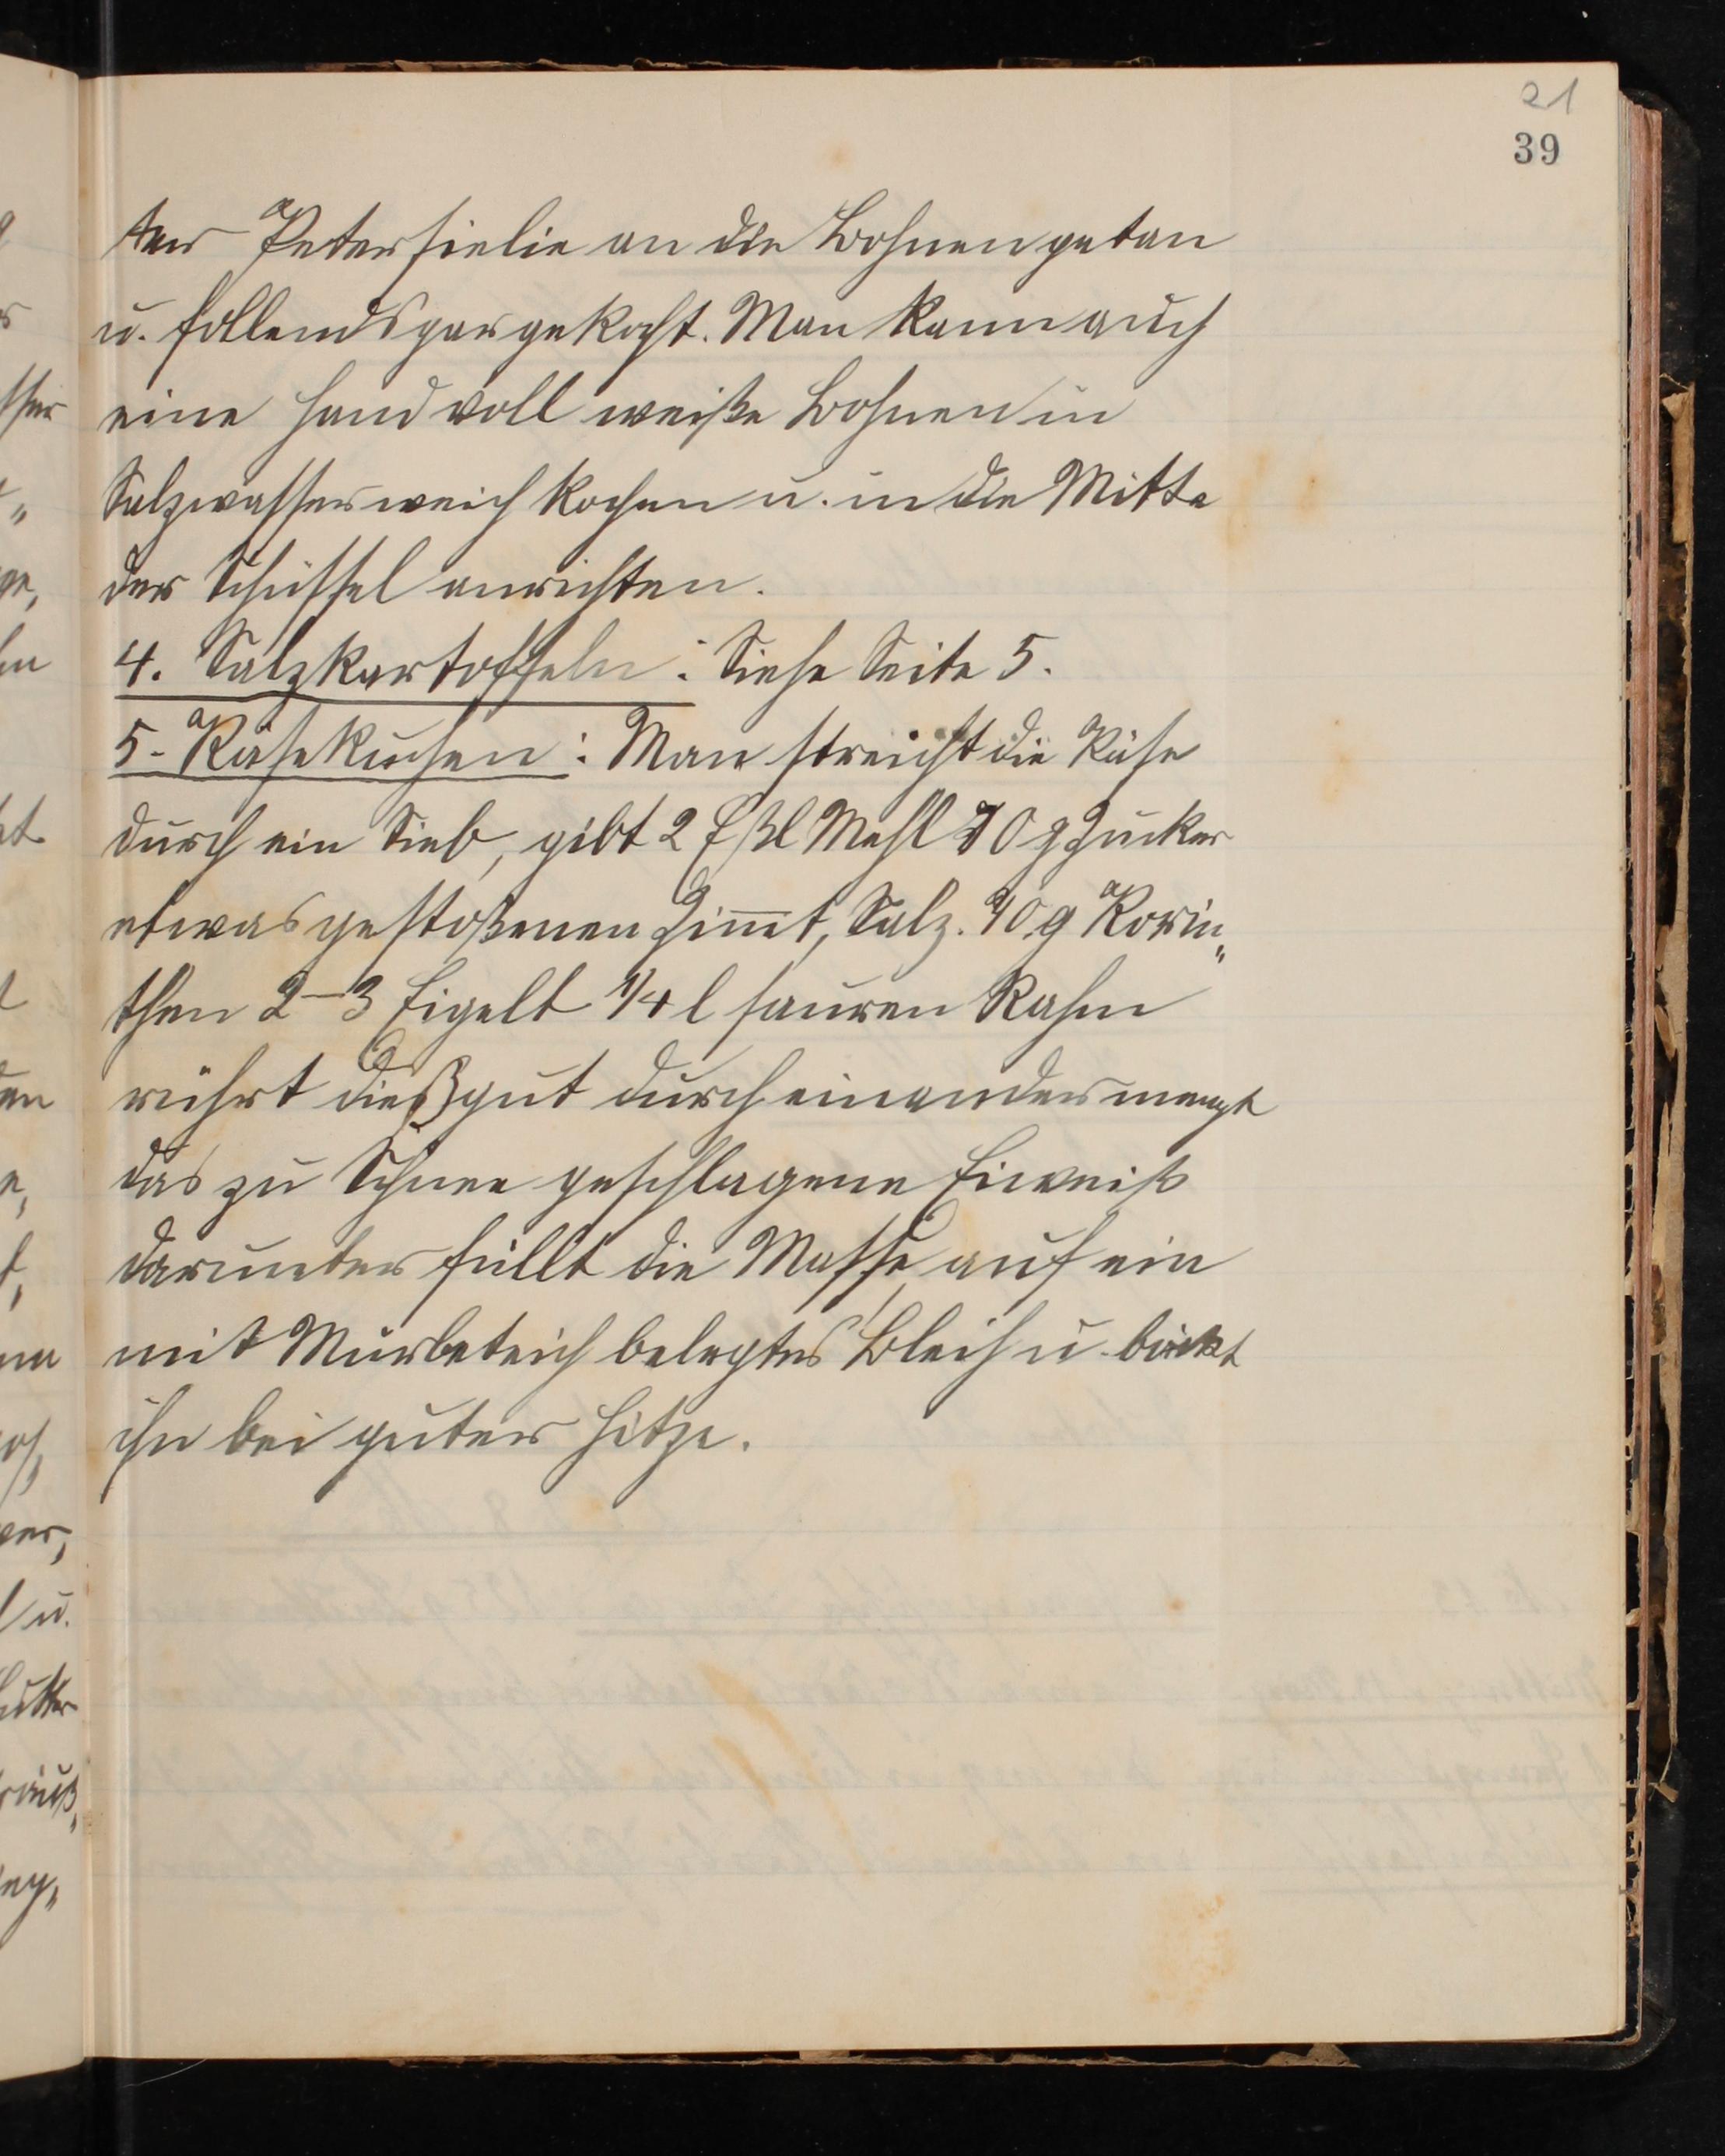 21
39
ter Petersielie an die Bohnen getan
u. follends gar gekocht. Man kann auch
eine Hand voll weiße Bohnen in
Salzwasser weich kochen u. in die Mitte
der Schüssel anrichten.
4. Salzkartoffeln: Siehe Seite 5.
5. Käsekuchen: Man streicht die Käse
durch ein Sieb, gibt 2 Eßl Mehl 70 g Zucker
etwas gestoßenen Zimmt, Salz. 70 g Korin„
then 2-3 Eigelb 1/4 l sauren Rahm
rührt dieß gut durch einander mengt
das zu Schnee geschlagene Eiweiß
darunter füllt die Masse auf ein
mit Mürbeteich belegtes Blech u. bäckt
ihn bei guter Hitze.